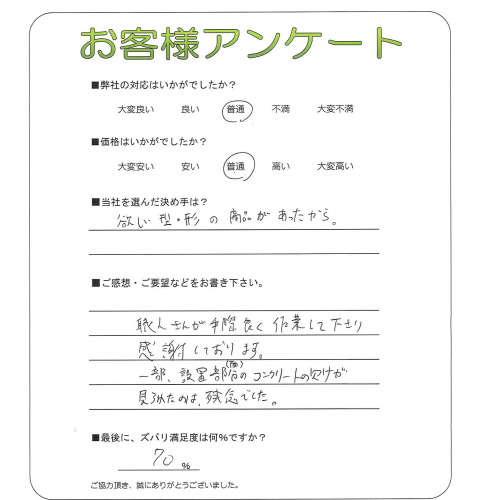 お客様アンケート
■弊社の対応はいかがでしたか？
大変良い 良い 普通 不満 大変不満
■価格はいかがでしたか？
大変安い 安い 普通 高い 大変高い
■当社を選んだ決め手は？
欲しい型・形の商品があったから。
■ご感想・ご要望などをお書き下さい。
職人さんが手際良く作業して下さり
感謝しております。
一部、設置部分(面)のコンクリートの欠けが
見られたのは、残念でした。
■最後に、ズバリ満足度は何％ですか？
70 ％
ご協力頂き、誠にありがとうございました。